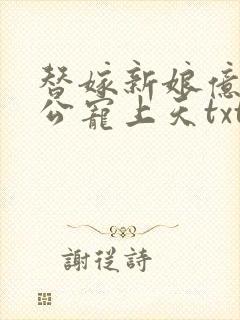 替嫁新娘億
公寵上天txt
謝從詩